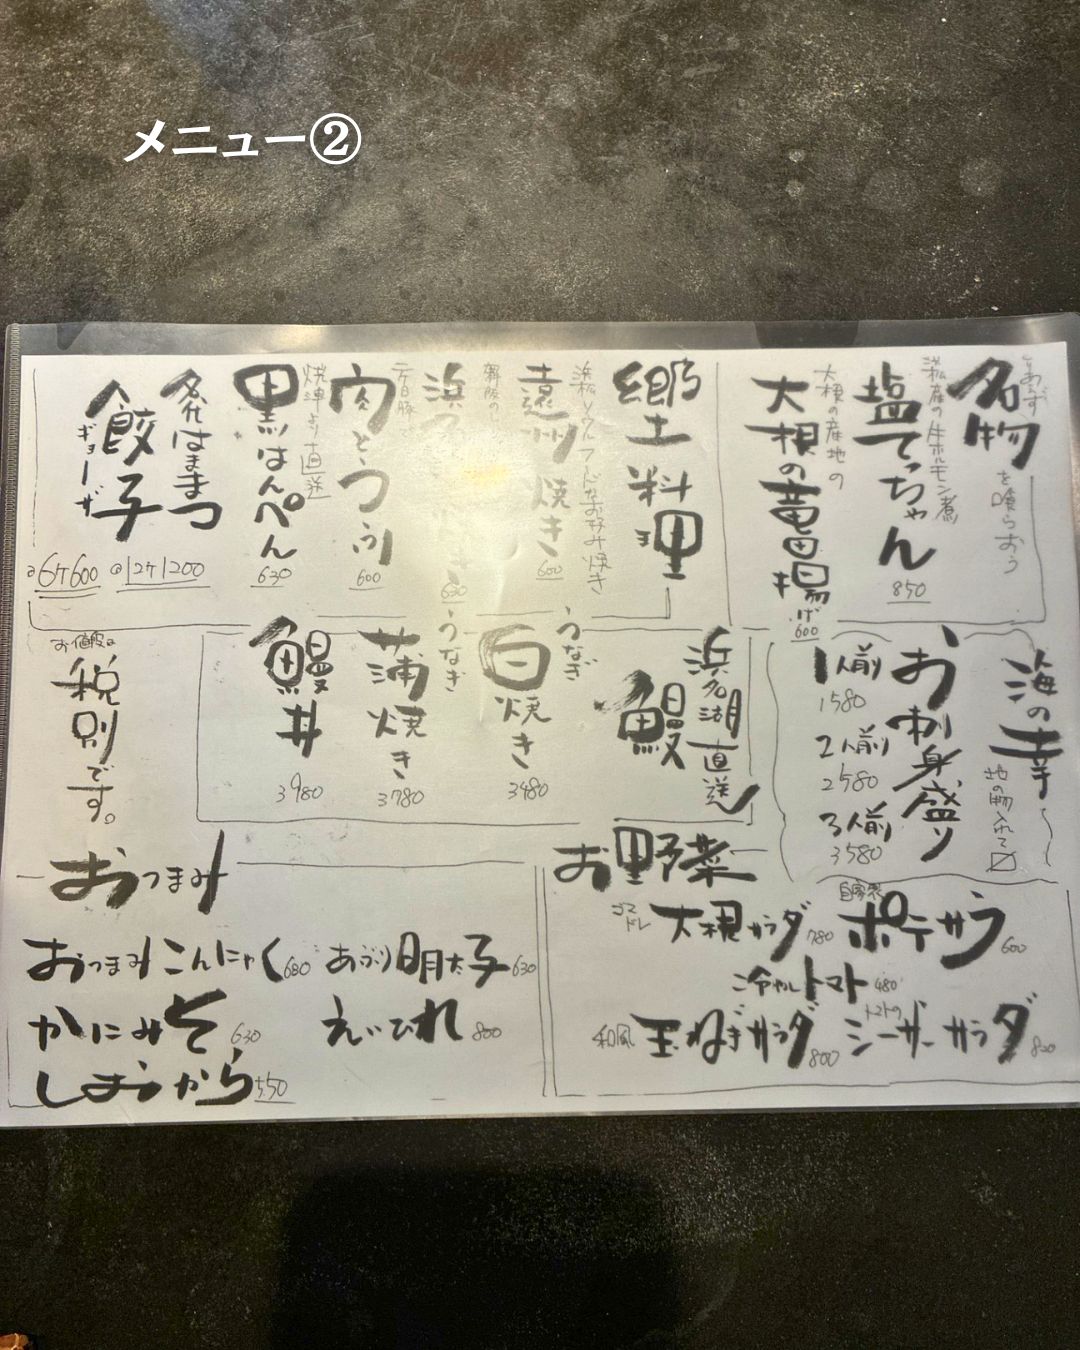 メニュー②
とりあえず
名物
を喰らおう
浜松産の牛ホルモン煮
塩てっちゃん
850
大根の産地の
大根の竜田揚げ
600
郷土料理
浜松ソウルフードなお好み焼き
遠州焼き
600
浜
630
肉とうふ
600
焼津より直送
黒はんぺん
630
名代はままつ
餃子
ギョーザ
6ケ600
12ケ1200
海の幸
地の物入れて〼
お刺身盛り
1人前
1580
2人前
2580
3人前
3580
浜名湖直送
鰻
うなぎ
白焼き
3480
うなぎ
蒲焼き
3780
鰻丼
3980
お値段は
税別です。
お野菜
ゴマドレ
大根サラダ 780
自家製
ポテサラ 600
冷やしトマト 480
和風 玉ねぎサラダ 800
シーザーサラダ
おつまみ
おつまみこんにゃく 680
あぶり明太子 630
かにみそ 630
えいひれ 800
しおから 550